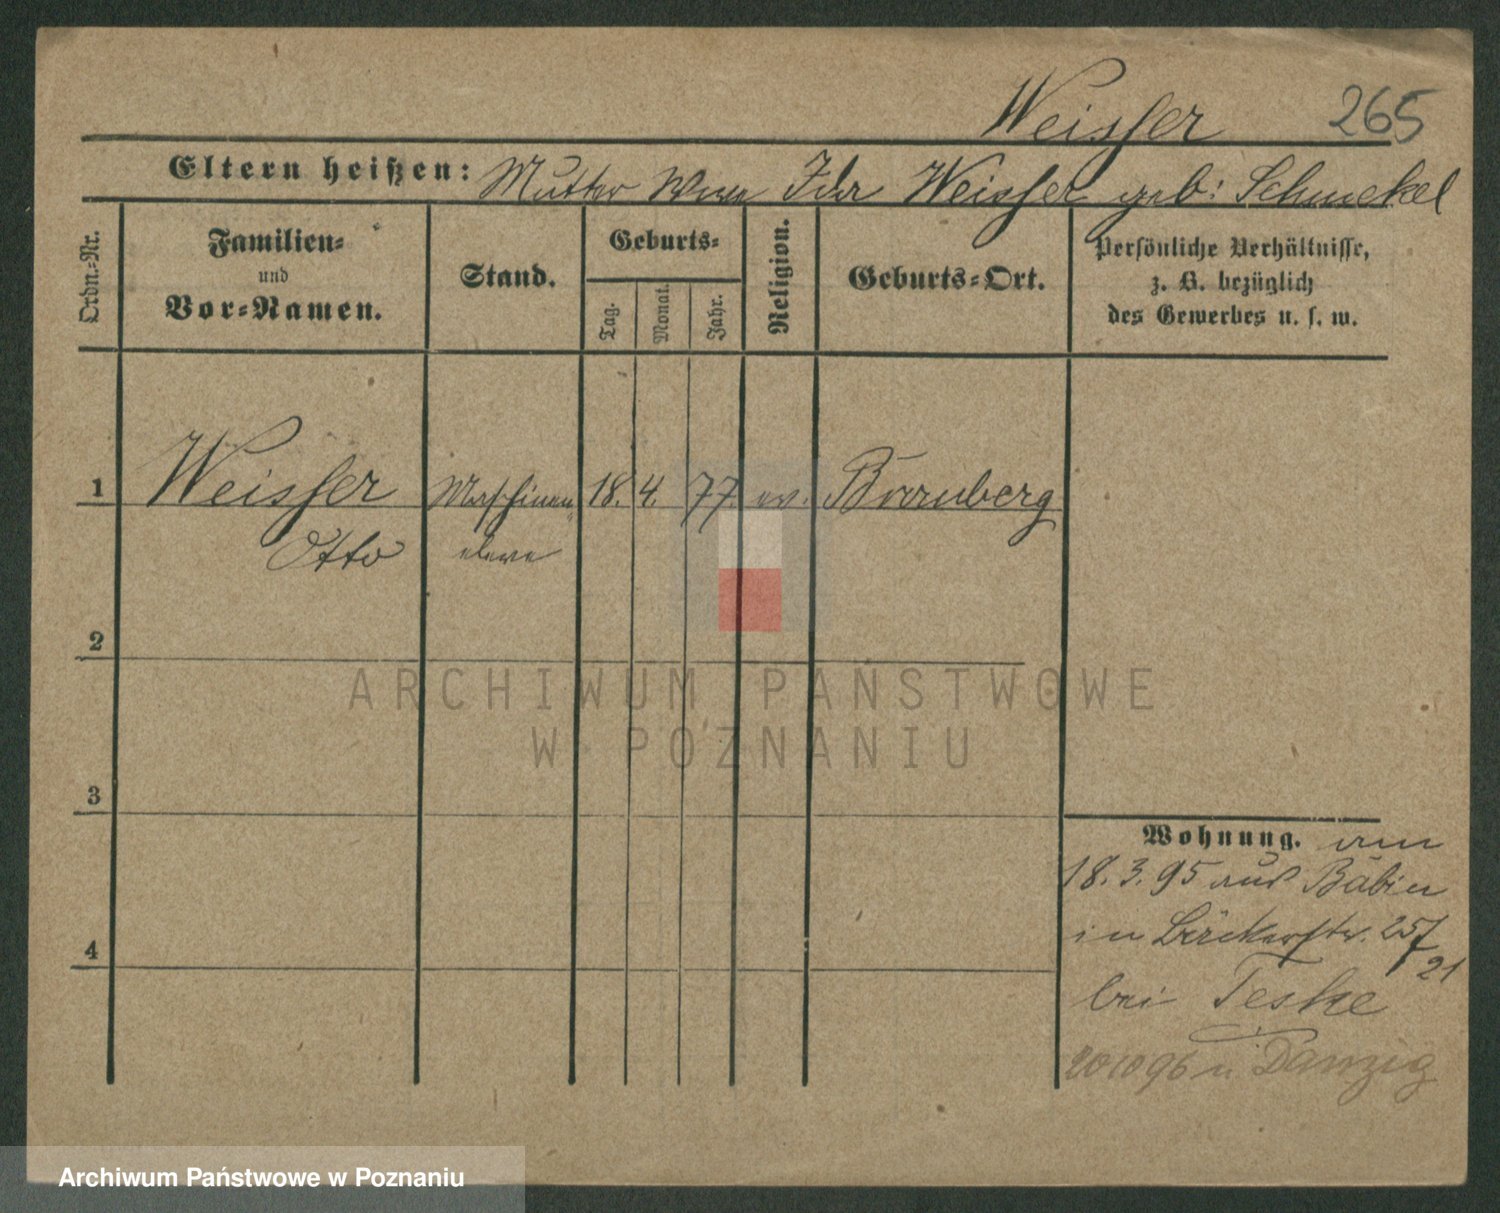 Weisser 265
Eltern heißen: Mutter Wwe Ida Weisser geb: Schmekel
Ordn.-Nr.
Familien-
und
Vor-Namen.
Stand.
Geburts-
Tag.
Monat.
Jahr.
Religion.
Geburts-Ort.
Persönliche Verhältnisse,
z. B. bezüglich
des Gewerbes u. s. w.
1 Weisser Maschinen 18. 4. 77. ev. Bromberg
Otto eleve
2
3
4
Wohnung. am
18. 3. 95 aus
in Bäckerstr. 25/21
bei Teske
20 10 96 n Danzig
ARCHIWUM PAŃSTWOWE
W POZNANIU
Archiwum Państwowe w Poznaniu